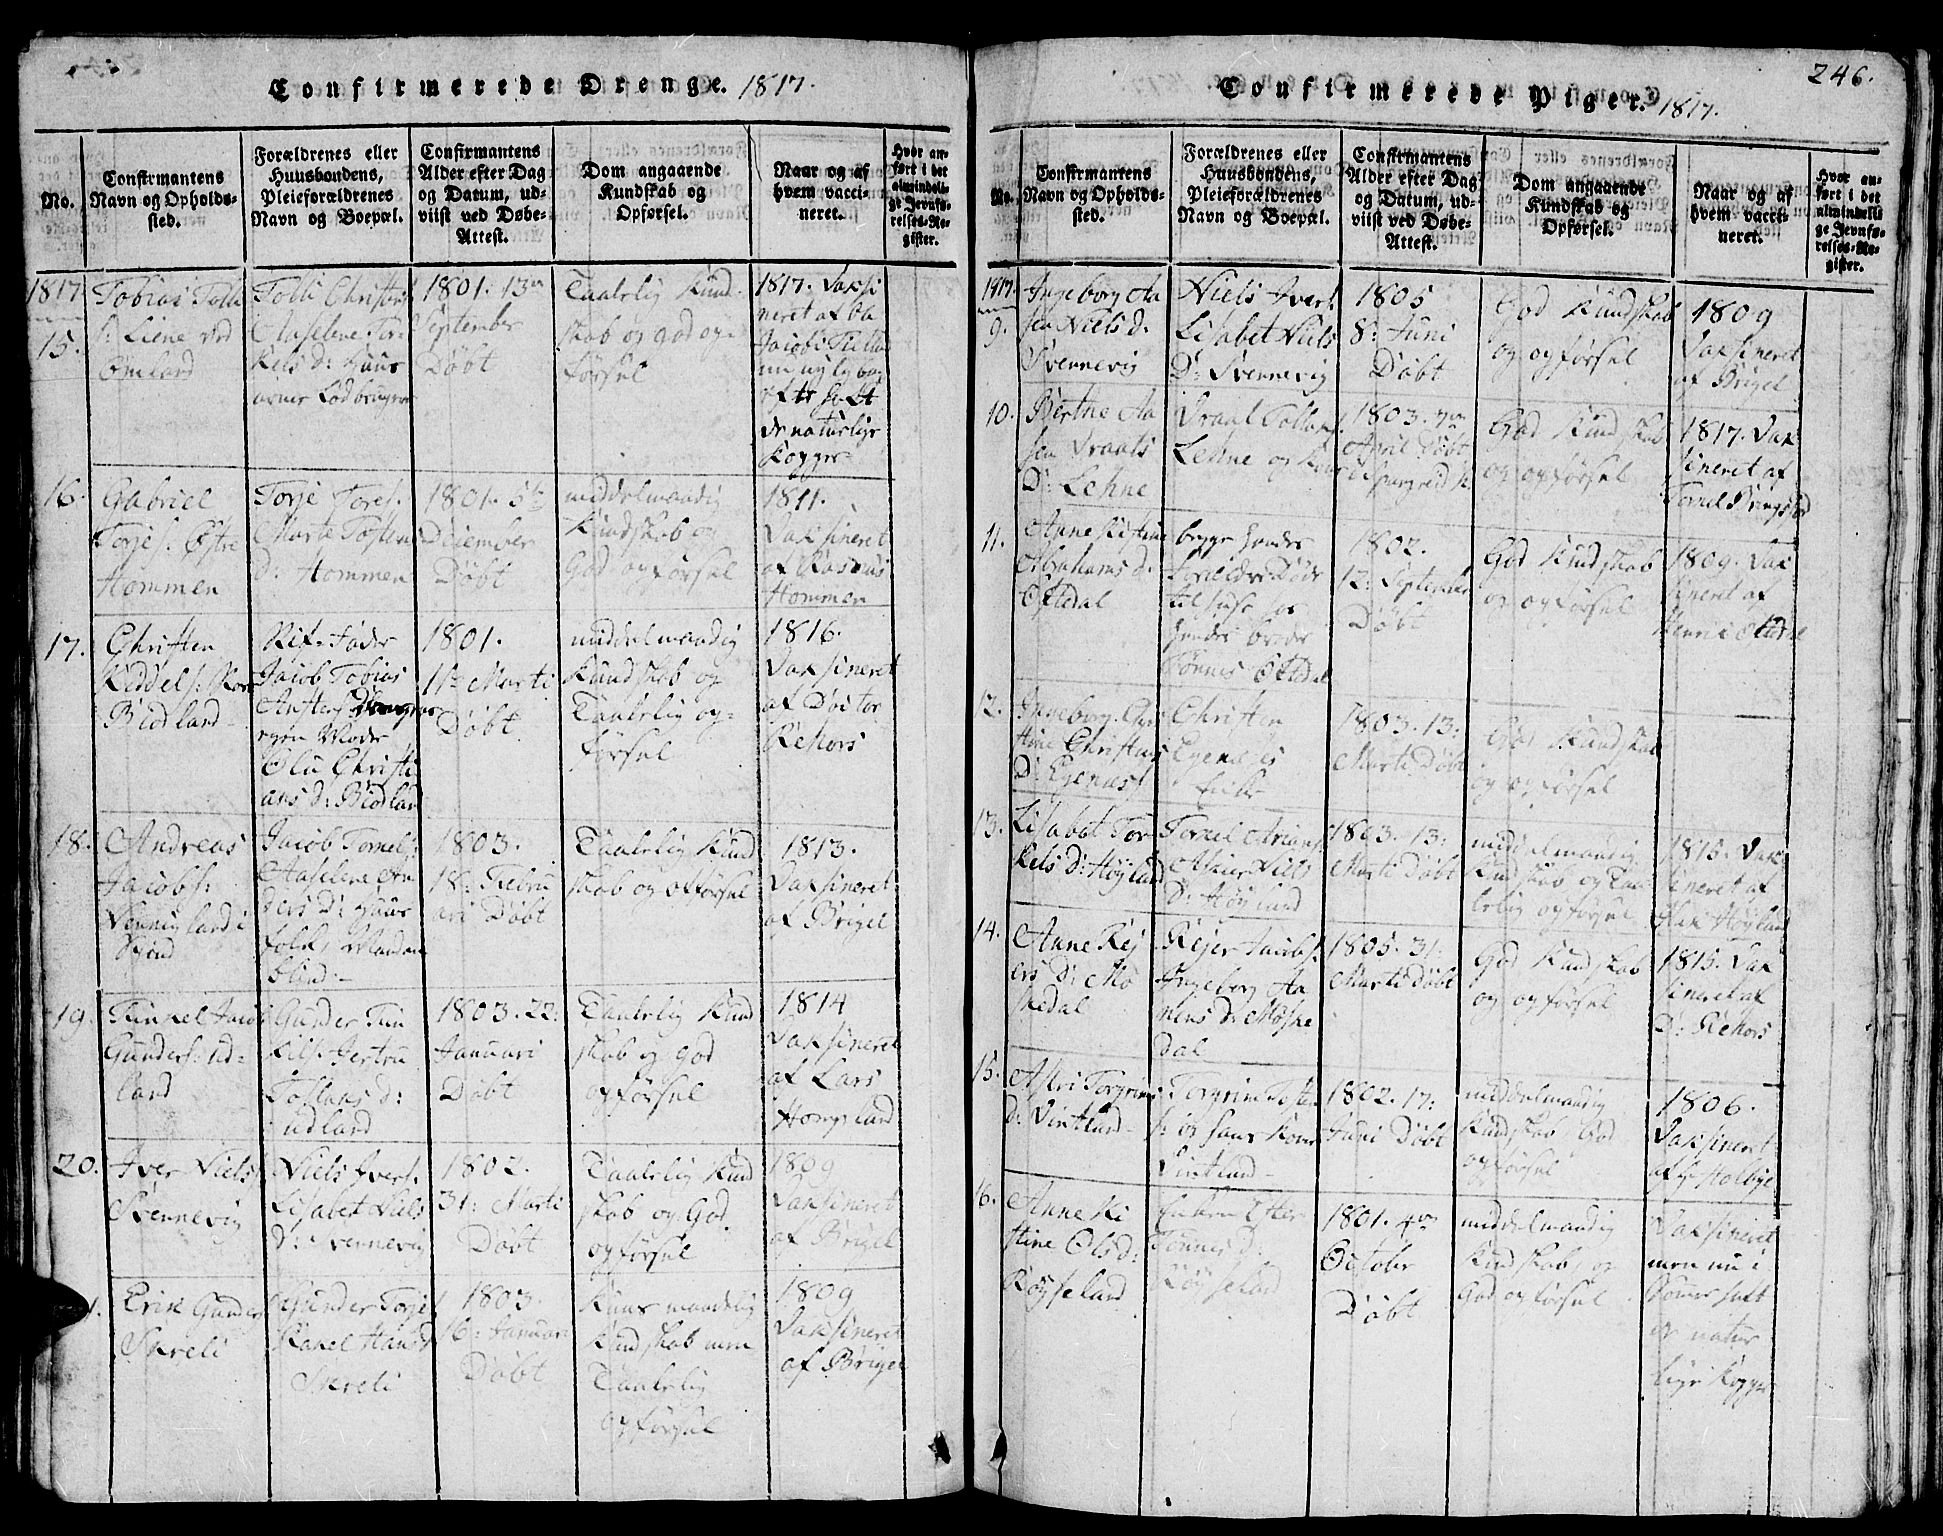 Confirmerede Drenge. 1817.
No.
Confirmantens
Navn og Opholds-
sted.
Forældrenes eller
Huusbondens,
Pleieforældrenes
Navn og Boepæl.
Confirmantens
Alder efter Dag
og Datum, ud-
viist ved Døbe-
Attest.
Dom angaaende
Kundskab og
Opførsel.
Naar og af
hvem vacci-
neret.
Hvor an-
ført i det
almindeli-
ge Jevnfø-
relses-Re-
gister.
1817
15.
Tobias Tolli
s: Liene ved
Omland
Tolli Christens
Aaselene Tor-
kels d: Huus
1801. 13de
September
Døbt
Taalelig Kund-
skab og god op-
førsel
1817. Vaksi
neret af
Jacob
de naturlige
Kopper
16.
Gabriel
Torjes: Østre
Hommen
Torje Tores:
Marte Tostens
d: Hommen
1801. 5te
December
Døbt
middelmaadig
Kundskab og
God opførsel
1811.
Vaksineret
af Rasmus
Hommen
17.
Christen
Keddels:
Biodland
Jacob Tobias
egen Moder
Christi
ans d: Biodland
1801.
11te Marti
Døbt
middelmaadig
Kundskab og
Taalelig op-
førsel
1816.
Vaksineret
af Doctor
Rehors
18.
Andreas
Jacobs:
Vennigland i
Jacob Tornels:
Aaselene An
ders D: Huus
folk, Manden
blind-
1803.
18: Februa
ari Døbt
Taalelig Kund
skab og opførsel
1813.
Vaksineret
af Brigel
19.
Tunnel Jacob
Gunders: Ud-
land
Gunder Tun
kils: Jertru
Tollaks d:
udland
1803. 22:
Januari
Døbt
Taalelig Kund
skab og God
opførsel
1814
Vaksineret
af Lars
Hompland
20.
Iver Niels:
Svennevig
Niels Ivers:
Lisabet Niels
d: Svennevig
1802.
31: Marti
Døbt
Taalelig Kund
skab og God
opførsel
1809
Vaksineret
af Brigel
1.
Erik Gunders
Skreli
Gunder Torjes
Rakel Hans d
Skreli
1803.
16: Januari
Døbt
Kuns maadelig
Kundskab men
Taalelig
opførsel
1809
Vaksineret
af Brigel
246.
Confirmerede Piger. 1817.
No.
Confirmantens
Navn og Opholds-
sted.
Forældrenes eller
Huusbondens,
Pleieforældrenes
Navn og Boepæl.
Confirmantens
Alder efter Dag
og Datum, ud-
viist ved Døbe-
Attest.
Dom angaaende
Kundskab og
Opførsel.
Naar og af
hvem vacci-
neret.
Hvor an-
ført i det
almindeli-
ge Jevnfø-
relses-Re-
gister.
1817.
9.
Ingeborg Aa
sea Niels d:
Svennevig
Niels Ivers:
Lisabet Niels
D: Svennevig
1805
8: Juni
Døbt
God Kundskab
og opførsel
1809
Vaksineret
af Brigel
10.
Berthe Aa
sea Draals
D: Lehne
Draal Tollaks:
Lehne og Kone
1803. 7de
April Døbt
God Kundskab
og opførsel
1817. Vak
sineret af
Tornel
11.
Anne Kistine
Abrahams d:
Ostedal
begge hendes
forældre Døde
til huse hos
hendes broder
Tønnes Ostedal
1802.
12: September
Døbt
God Kundskab
og opførsel
1809. Vak
sineret af
Henrik Ostedal
12.
Inneborg Chri
stine Christens
D: Egenæs
Christen
Egenæs
Enke
1803. 13:
Marti Døbt
God Kundskab
og opførsel
13.
Lisabet Tor
kels D: Høyland
Tornel Arians:
Niels
D: Høyland
1803. 13:
Marti Døbt
middelmaadig
Kundskab og Taa
lelig opførsel
1815. Vak
sineret af
Høyland
14.
Anne Rej
ers D: Mø
skedal
Rejer Jacobs:
Ingeborg Aa
nens D: Møske
dal
1805. 31:
Marti Døbt
God Kundskab
og opførsel
1815. Vak
sineret af
D: Rehors
15.
Astri Torgrims
d: Vintland-
Torgrim Tosten
s: og hans Kone
Vintland-
1802. 17:
Juni Døbt
middelmaadig
Kundskab God
opførsel
1806.
Vaksineret
af Holbye
16.
Anne Ki
stine Ols d:
Røyseland
Enken
Tønnes D:
Røyseland
1801. 4de
October
Døbt
middelmaadig
Kundskab og
God opførsel
Vaksineret
men nu i
Sommer haft
de natur
lige Kopper